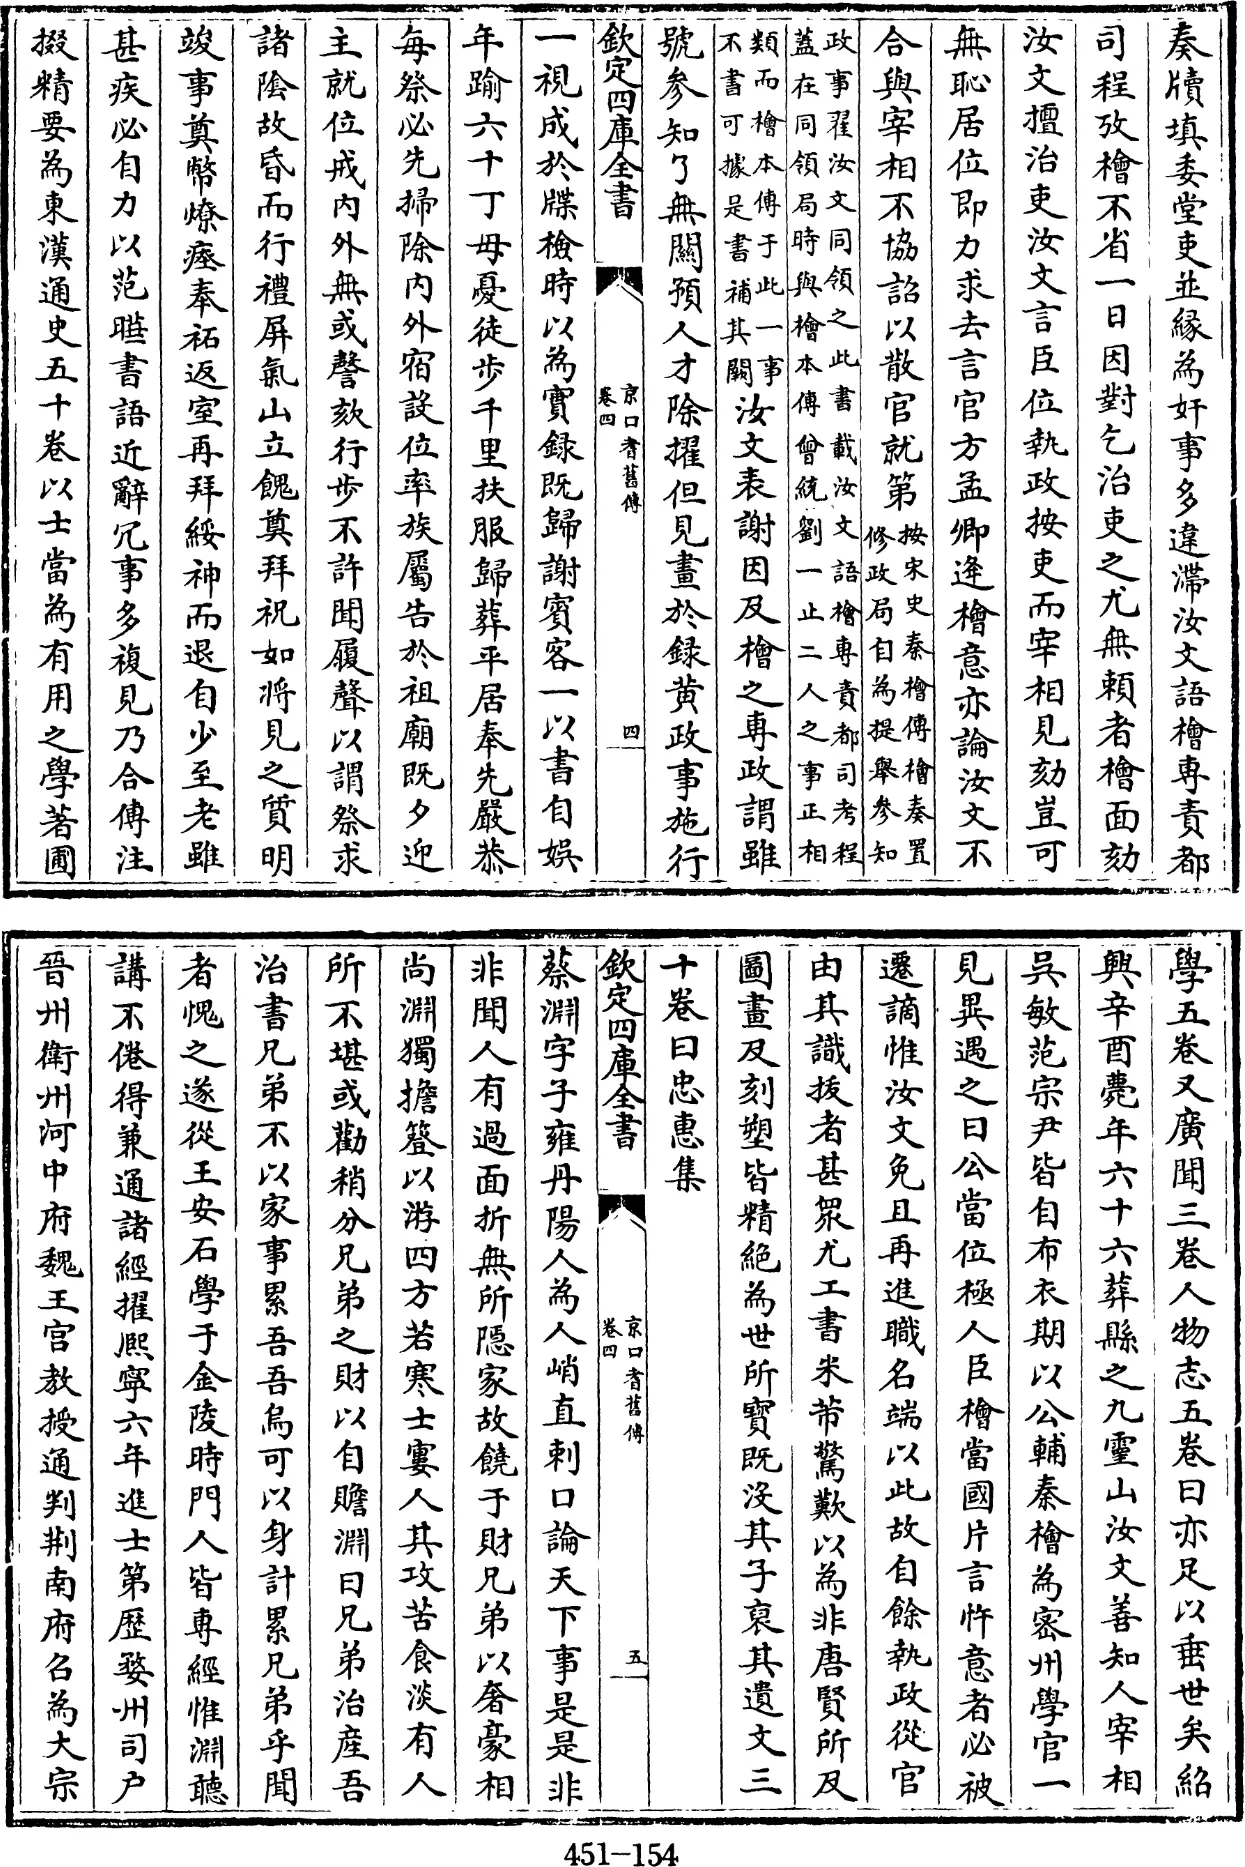 奏牘填委堂吏並緣為奸事多違滯汝文語檜專責都
司程攷檜不省一日因對乞治吏之尤無賴者檜面劾
汝文擅治吏汝文言臣位執政按吏而宰相見劾豈可
無恥居位即力求去言官方孟卿逄檜意亦論汝文不
合與宰相不協詔以散官就第按宋史秦檜傳檜奏置
修政局自為提舉參知
政事翟汝文同領之此書載汝文語檜專責都司考程
蓋在同領局時與檜本傳曾統劉一止二人之事正相
類而檜本傳于此一事
不書可據是書補其闕汝文表謝因及檜之專政謂雖
號參知了無關預人才除擢但見畫於録黄政事施行
欽定四庫全書
京口耆舊傳
卷四
四
一視成於牒檢時以為實録既歸謝賓客一以書自娛
年踰六十丁母憂徒步千里扶服歸葬平居奉先嚴恭
每祭必先掃除内外宿設位率族屬告於祖廟既夕迎
主就位戒内外無或謦欬行步不許聞履聲以謂祭求
諸陰故昏而行禮屏氣山立餽奠拜祝如將見之質明
竣事奠幣燎瘞奉祏返室再拜綏神而退自少至老雖
甚疾必自力以范曄書語近辭冗事多複見乃合傅注
掇精要為東漢通史五十卷以士當為有用之學著圃
學五卷又廣聞三卷人物志五卷曰亦足以垂世矣紹
興辛酉薨年六十六葬縣之九靈山汝文善知人宰相
吳敏范宗尹皆自布衣期以公輔秦檜為密州學官一
見異遇之曰公當位極人臣檜當國片言忤意者必被
遷謫惟汝文免且再進職名端以此故自餘執政從官
由其識拔者甚衆尤工書米芾驚歎以為非唐賢所及
圖畫及刻塑皆精絶為世所寳既没其子裒其遺文三
十卷曰忠惠集
欽定四庫全書
京口耆舊傳
卷四
五
蔡淵字子雍丹陽人為人峭直剌口論天下事是是非
非聞人有過面折無所隱家故饒于財兄弟以奢豪相
尚淵獨擔簦以游四方若寒士寠人其攻苦食淡有人
所不堪或勸稍分兄弟之財以自贍淵曰兄弟治産吾
治書兄弟不以家事累吾吾烏可以身計累兄弟乎聞
者愧之遂從王安石學于金陵時門人皆專經惟淵聽
講不倦得兼通諸經擢熈寧六年進士第歷婺州司户
晉州衛州河中府魏王宫教授通判荆南府召為大宗
451—154